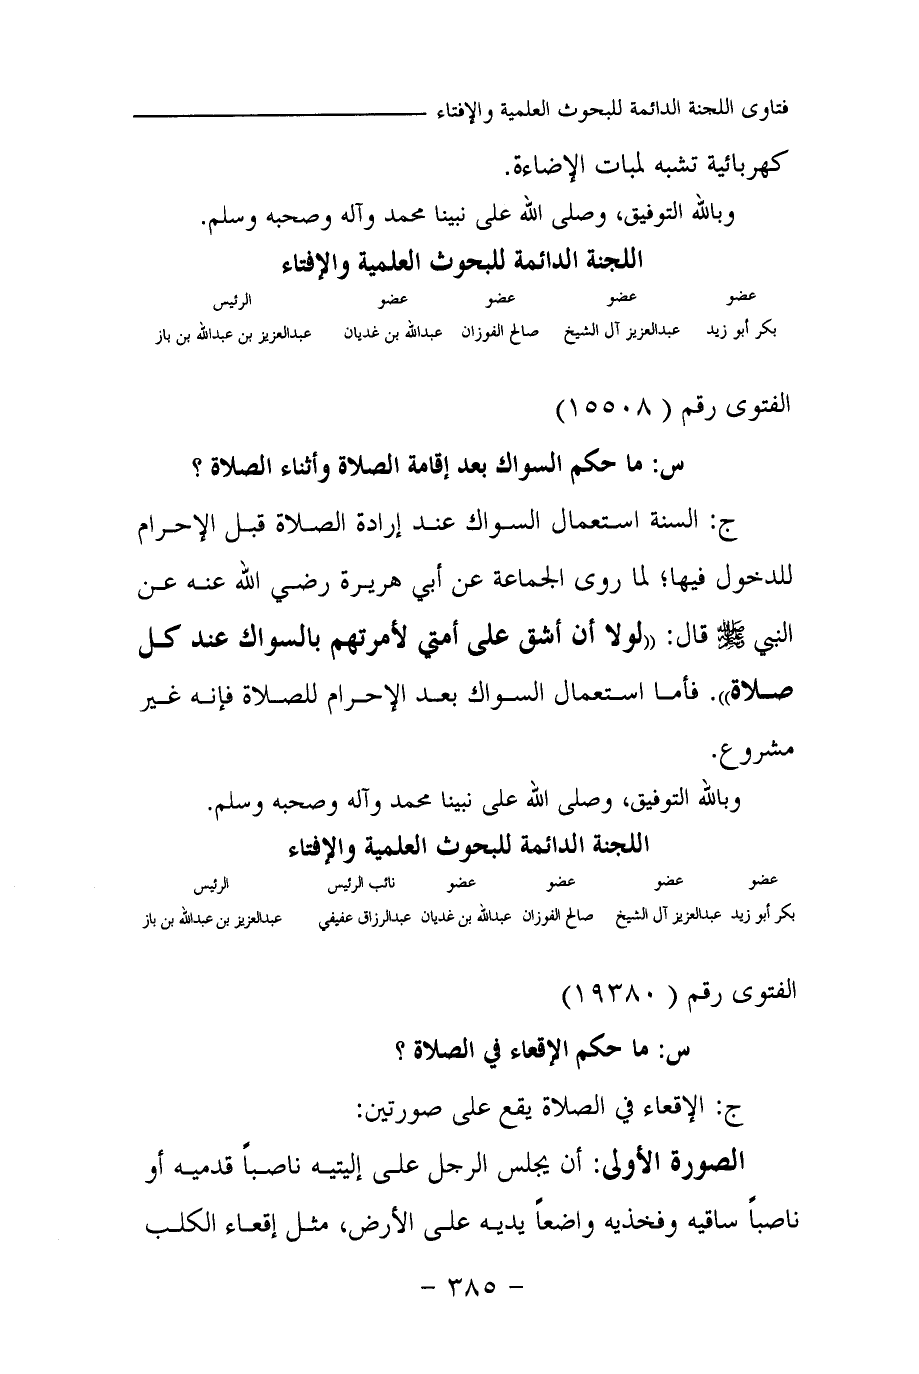 فتاوى اللجنة الدائمة للبحوث العلمية والإفتاء
كهربائية تشبه لمبات الإضاءة.
وبالله التوفيق، وصلى الله على نبينا محمد وآله وصحبه وسلم.
اللجنة الدائمة للبحوث العلمية والإفتاء
عضو عضو عضو عضو الرئيس
بكر أبو زيد عبدالعزيز آل الشيخ صالح الفوزان عبدالله بن غديان عبدالعزيز بن عبدالله بن باز
الفتوى رقم ( ١٥٥٠٨)
س: ما حكم السواك بعد إقامة الصلاة وأثناء الصلاة ؟
ج: السنة استعمال السواك عند إرادة الصلاة قبل الإحرام
للدخول فيها؛ لما روى الجماعة عن أبي هريرة رضي الله عنه عن
النبي ﷺ قال: ((لولا أن أشق على أمتي لأمرتهم بالسواك عند كل
صلاة)). فأما استعمال السواك بعد الإحرام للصلاة فإنه غير
مشروع.
وبالله التوفيق، وصلى الله على نبينا محمد وآله وصحبه وسلم.
اللجنة الدائمة للبحوث العلمية والإفتاء
عضو عضو عضو عضو نائب الرئيس الرئيس
بكر أبو زيد عبدالعزيز آل الشيخ صالح الفوزان عبدالله بن غديان عبدالرزاق عفيفي عبدالعزيز بن عبدالله بن باز
الفتوى رقم ( ١٩٣٨٠)
س: ما حكم الإقعاء في الصلاة ؟
ج: الإقعاء في الصلاة يقع على صورتين:
الصورة الأولى: أن يجلس الرجل على إليتيه ناصباً قدميه أو
ناصباً ساقيه وفخذيه واضعاً يديه على الأرض، مثل إقعاء الكلب
- ٣٨٥ -